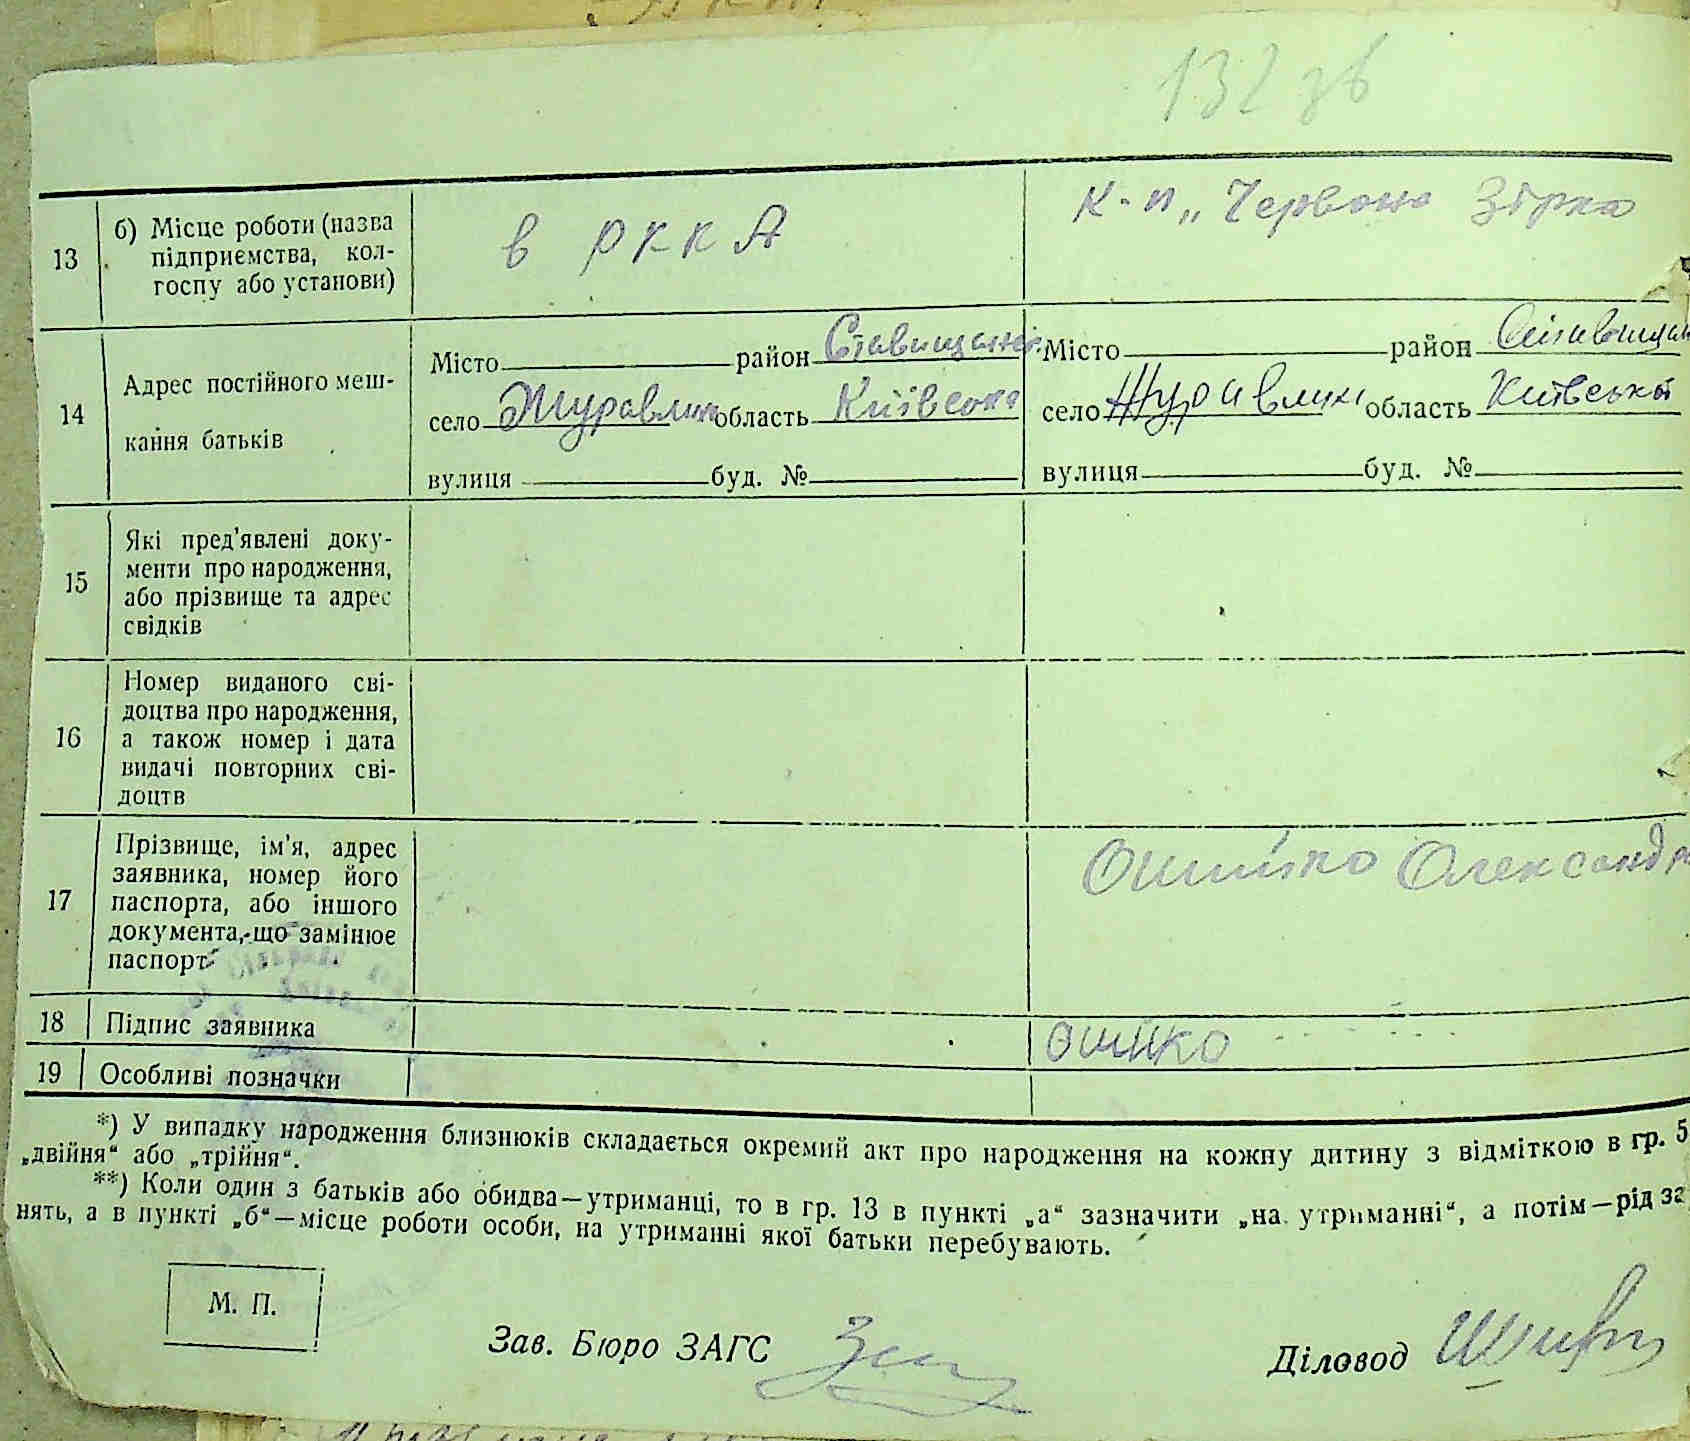 132 зв
13 б) Місце роботи (назва
підприємства, кол-
госпу або установи)
в РККА
к-п „Червона Зірка
14 Адрес постійного меш-
кання батьків
Місто район Ставищанс.
село Журавлиха область Київська
вулиця буд. №
Місто район Ставищан
село Журавлиха область Київська
вулиця буд. №
15 Які пред'явлені доку-
менти про народження,
або прізвище та адрес
свідків
16 Номер виданого сві-
доцтва про народження,
а також номер і дата
видачі повторних сві-
доцтв
17 Прізвище, ім'я, адрес
заявника, номер його
паспорта, або іншого
документа, що замінює
паспорт
Ошийко Олександр
18 Підпис заявника
Ошийко
19 Особливі позначки
*) У випадку народження близнюків складається окремий акт про народження на кожну дитину з відміткою в гр. 5
„двійня“ або „трійня“.
**) Коли один з батьків або обидва—утриманці, то в гр. 13 в пункті „а“ зазначити „на утриманні“, а потім—рід за
нять, а в пункті „б“—місце роботи особи, на утриманні якої батьки перебувають.
М. П.
Зав. Бюро ЗАГС
Діловод